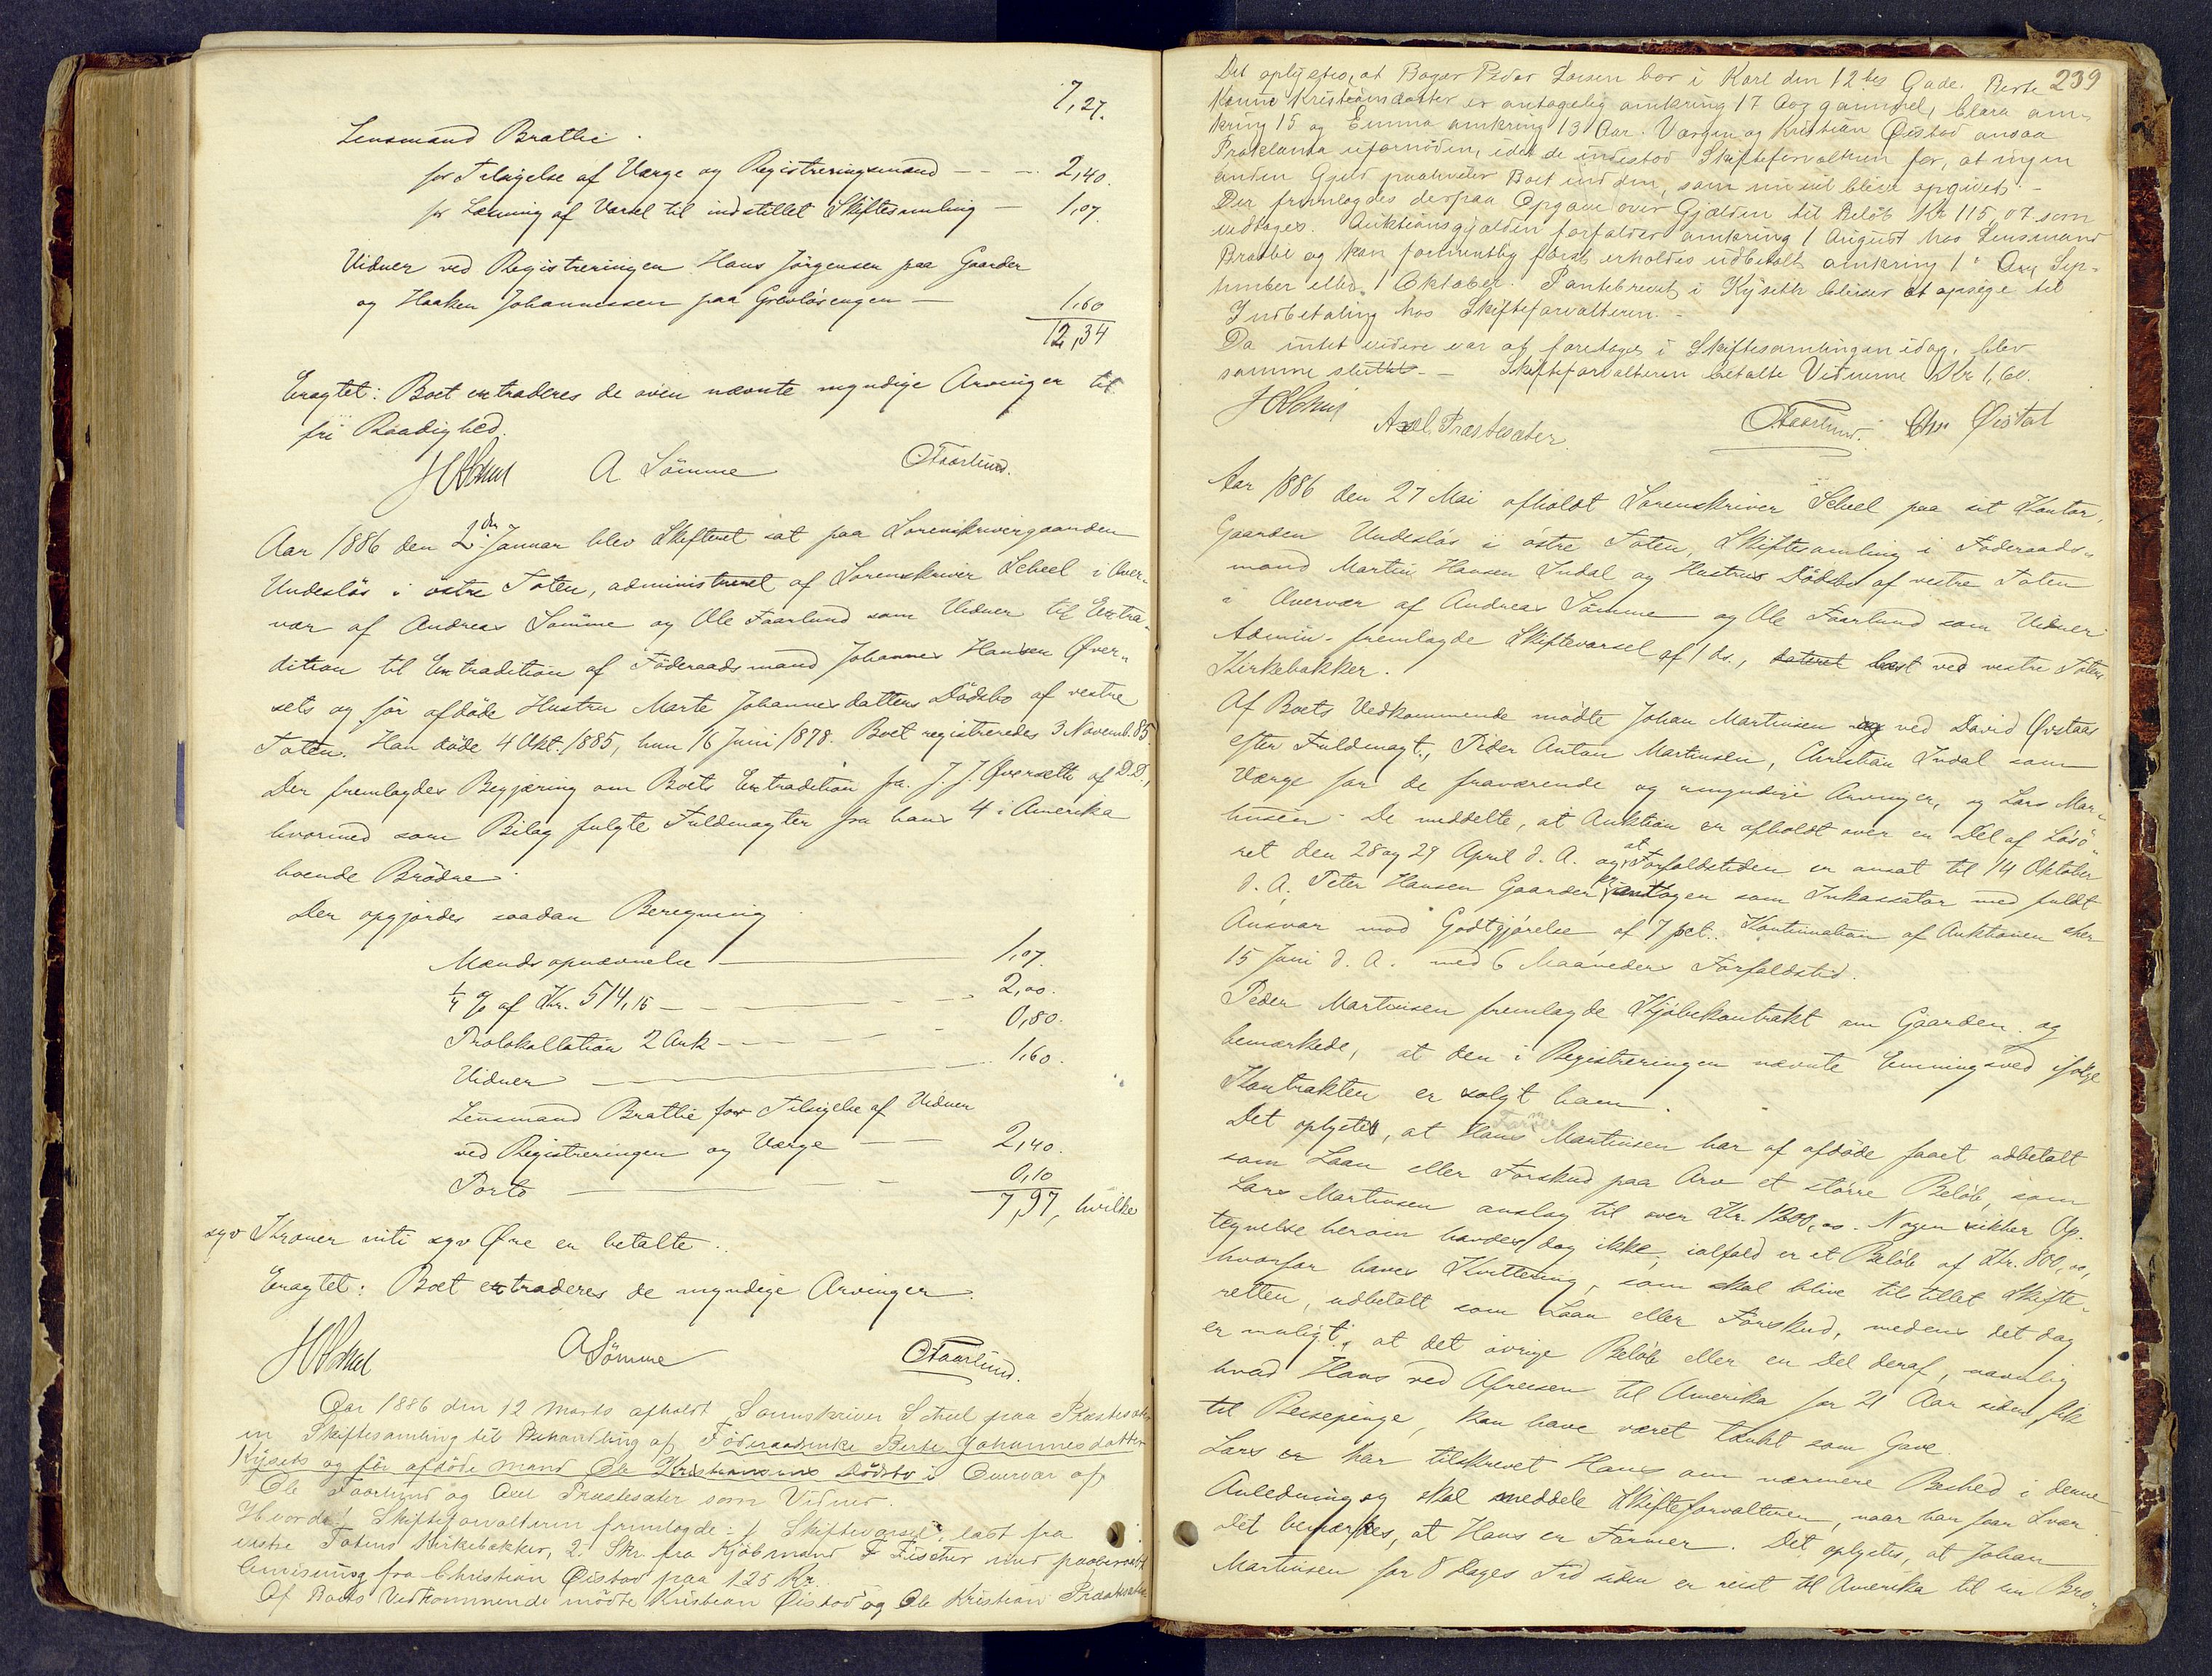 7,27.
Lensmand Brattlie.
for Tilsigelse af Værge og Registreringsmænd - - - 2,40.
for Læsning af Varsel til indstillet Skiftesamling - 1,07.
Vidner ved Registreringen Hans Jørgensen paa Gaarder
og Haaken Johannessen paa Grevløsengen - 1,60
12,34
Eragtet: Boet extraderes de oven nævnte myndige Arvinger til
fri Raadighed.
A Sömme OFaarlund.
Aar 1886 den 2den Januar blev Skifteret sat paa Sorenskrivergaarden
Undesløs i østre Toten, administreret af Sorenskriver Scheel i Over-
vær af Andreas Sömme og Ole Faarlund som Vidner til Extra-
dition til Extradition af Föderaadsmand Johannes Hansen Øver-
sets og før afdøde Hustru Marte Johannesdatters Dødsbo af vestre
Toten. Han døde 4 Okt. 1885, hun 16 Juni 1878. Boet registreredes 3 Novemb. 85.
Der fremlagdes Begjæring om Boets Extradition fra J. J. Øversætte af D.D.,
hvormed som Bilag fulgte Fuldmagter fra hans 4 i Amerika
boende Brødre.
Der opgjordes saadan Beregning
Mandsopnævnelse - 1,07.
1/4 % af Kr. 514,15 - - - 2,00.
Protokollation 2 Ark - - - 0,80.
Vidner - 1,60.
Lensmand Brattlie for Tilsigelse af Vidner
ved Registreringen og Værge - - 2,40.
Porto - 0,10
7,97, hvilke
syv Kroner niti syv Øre er betalte.
Eragtet: Boet extraderes de myndige Arvinger.
ASömme OFaarlund.
Aar 1886 den 12 Marts afholdt Sorenskriver Scheel paa Præstesæter
en Skiftesamling til Behandling af Föderaadsenke Berte Johannesdatter
Kysets og før afdøde Mand Ole Kristiansens Dødsbo i Overvær af
Ole Faarlund og Axel Præstesæter som Vidner.
Hvorda Skifteforvalteren fremlagde: 1. Skiftevarsel læst fra
vestre Totens Kirkebakker, 2. Skr. fra Kjøbmand F Fischer med paaberaabt
Anvisning fra Christian Øistad paa 125 Kr.
Af Boets Vedkommende mødte Kristian Øistad og Ole Kristian Præstesæter
239
Det oplystes, at Bager Peder Larsen bor i Karl den 12tes Gade. Berte
Karine Kristiansdatter er antagelig omkring 17 Aar gammel, Clara om-
kring 15 og Emma omkring 13 Aar. Værgen og Kristian Øistad ansaa
Proklama ufornøden, idet de indestod Skifteforvalteren for, at ingen
anden Gjæld paahviler Boet end den, som nu vil blive opgivet. -
Der fremlagdes derpaa Opgave over Gjælden til Beløb Kr 115,07 som
vedtages. Auktionsgjælden forfalder omkring 1 August hos Lensmand
Brattlie og kan formentlig først erholdes udbetalt omkring 1. Sep-
tember eller 1 Oktober. Pantebrevet i Kyseth bliver at opsige til
Indbetaling hos Skifteforvalteren. -
Da intet videre var at foretage i Skiftesamlingen idag, blev
samme sluttet. - Skifteforvalteren betalte Vidnerne Kr 1,60.
Axel Præstesæter OFaarlund. Chr Øistad
Aar 1886 den 27 Mai afholdt Sorenskriver Scheel paa sit Kontor,
Gaarden Undesløs i østre Toten, Skiftesamling i Föderaads-
mand Martin Hansen Indal og Hustrus Dødsbo af vestre Toten
i Overvær af Andreas Sömme og Ole Faarlund som Vidner
Admin. fremlagde Skiftevarsel af 1 ds., dateret læst ved vestre Totens
Kirkebakker.
Af Boets Vedkommende mødte Johan Martinsen og ved David Øvstaas
efter Fuldmagt, Peder Anton Martinsen, Christian Indal som
Værge for de fraværende og umyndige Arvinger, og Lars Mar-
tinsen. De meddelte, at Auktion er afholdt over en Del af Løsø-
ret den 28 og 29 April d. A. og at Forfaldstiden er ansat til 14 Oktober
d. A. Peter Hansen Gaarder er antagen som Inkassator med fuldt
Ansvar mod Godtgjørelse af 7 pct. Kontinuation af Auktionen sker
15 Juni d. A. med 6 Maaneders Forfaldstid.
Peder Martinsen fremlagde Kjøbekontrakt om Gaarden og
bemærkede, at den i Registreringen nævnte Emningsved ifølge
Kontrakten er solgt ham.
Farmer
Det oplystes, at Hans Martinsen har af afdøde faaet udbetalt
som Laan eller Forskud paa Arv et større Beløb, som
Lars Martinsen anslog til over Kr. 1200,00. Nogen sikker Op-
tegnelse herom havdes dog ikke, ialfald er et Beløb af Kr. 800,00,
hvorfor haves Kvittering, som skal blive tilstillet Skifte-
retten, udbetalt som Laan eller Forskud, medens det dog
er muligt, at det øvrige Beløb eller en Del deraf, navnlig
hvad Hans ved Afreisen til Amerika for 21 Aar siden fik
til Reisepenge, kan have været tænkt som Gave.
Lars er har tilskrevet Hans om nærmere Besked i denne
Anledning og skal meddele Skifteforvalteren, naar han faar Svar.
Det bemærkes, at Hans er Farmer. Det oplystes, at Johan
Martinsen for 8 Dages Tid siden er reist til Amerika til sin Bro-